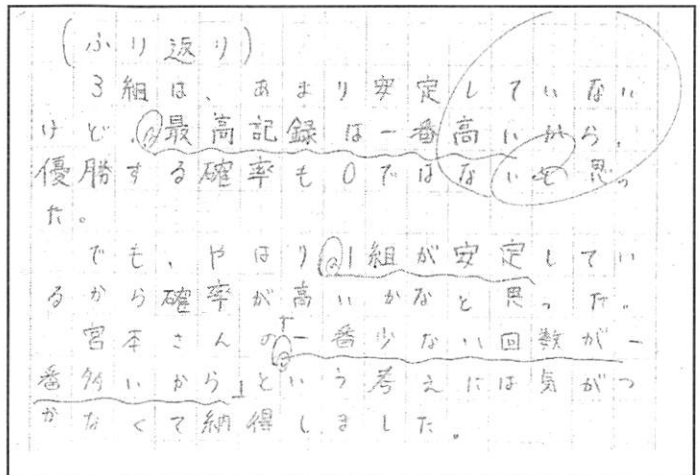 (ふり返り)
3組は、あまり安定していない
けど、最高記録は一番高いから、
優勝する確率も0ではないと思っ
た。
でも、やはり1組が安定してい
るから確率が高いかなと思った。
宮本さんの「一番少ない回数が一
番多いから」という考えには気がつ
かなくて納得しました。